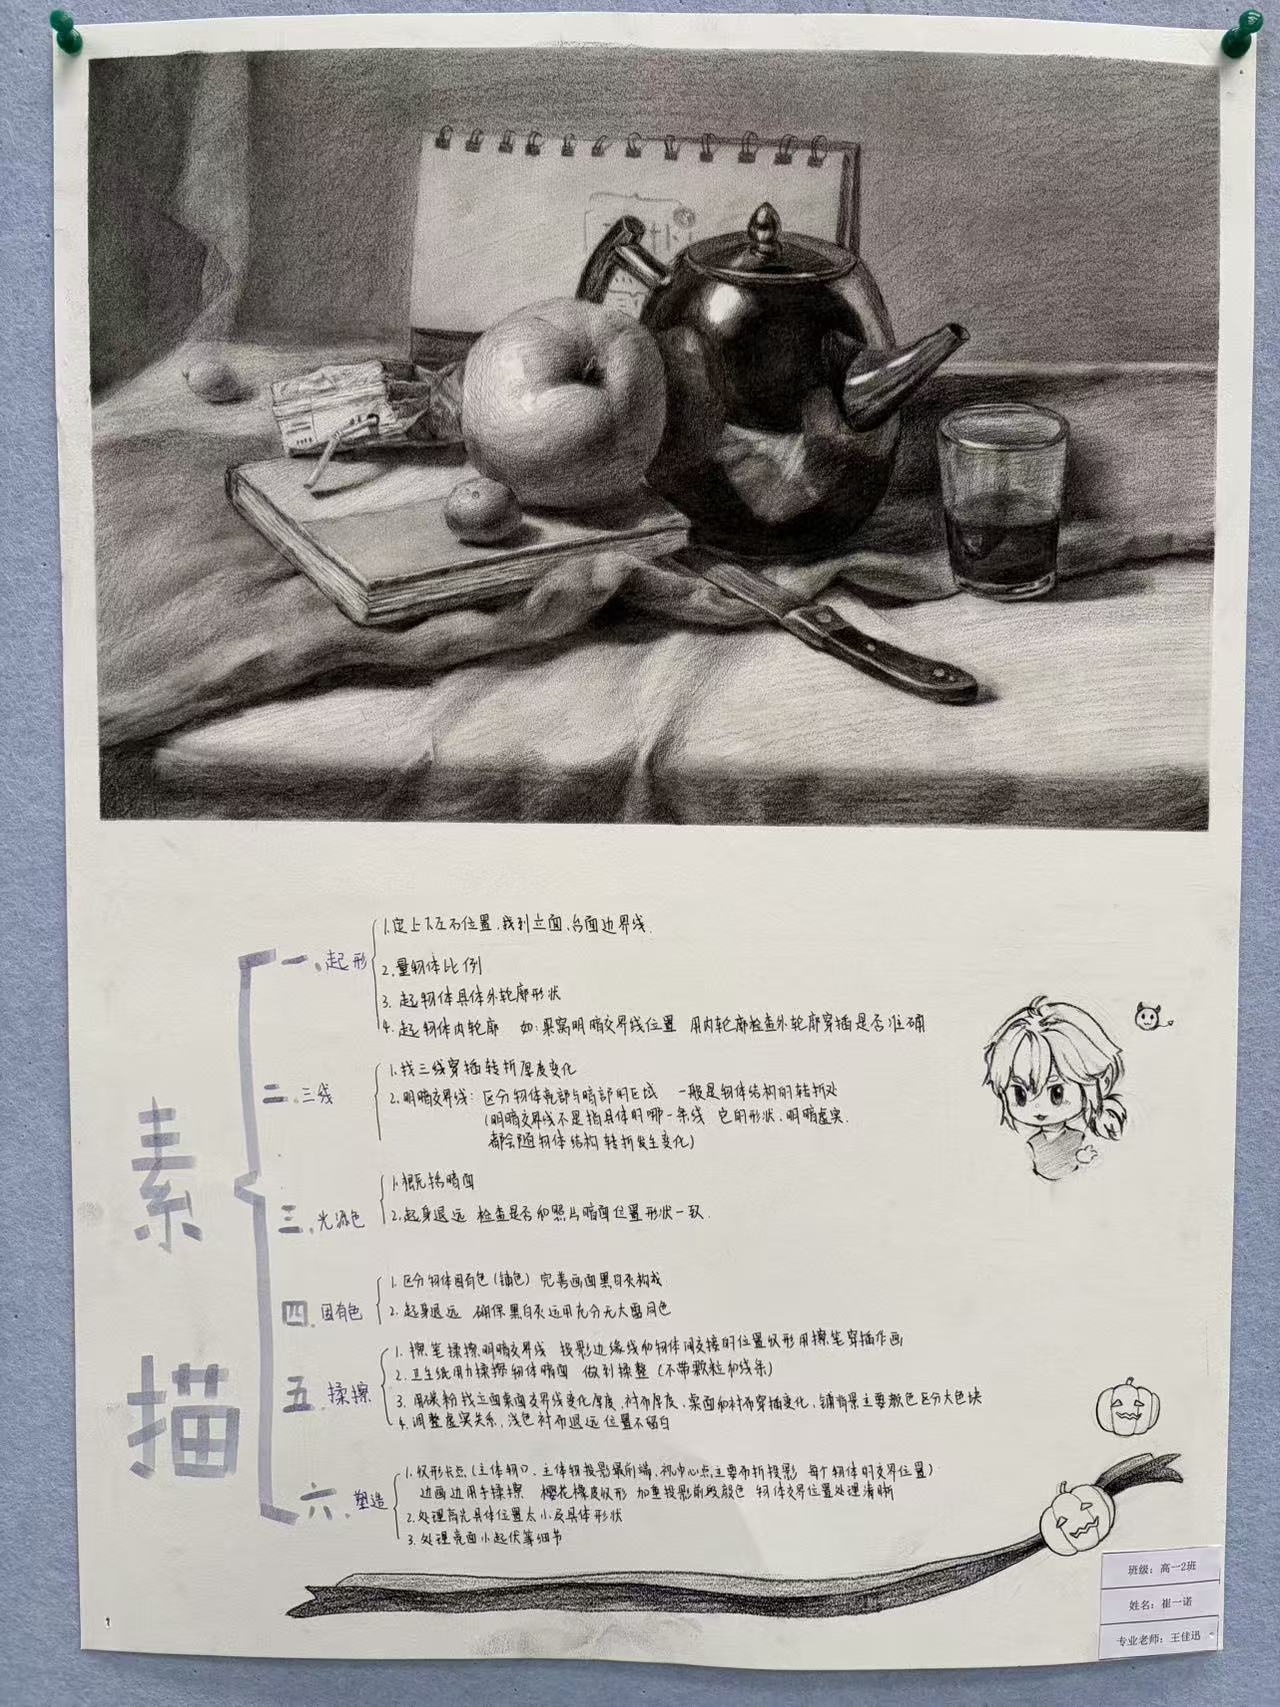 素描
一、起形
1.定上下左右位置.找到立面、台面边界线.
2.量物体比例
3.起物体具体外轮廓形状
4.起物体内轮廓 如:果窝明暗交界线位置 用内轮廓检查外轮廓穿插是否准确
二.三线
1.找三线穿插转折厚度变化
2.明暗交界线:区分物体亮部与暗部的区域 一般是物体结构的转折处
(明暗交界线不是指具体的哪一条线 它的形状、明暗虚实.
都会随物体结构转折发生变化)
三.光源色
1.概括暗面
2.起身退远 检查是否和照片暗面位置形状一致.
四.固有色
1.区分物体固有色(铺色) 完善画面黑白灰构成
2.起身退远 确保黑白灰运用充分无大雷同色
五.揉擦
1.擦笔揉擦明暗交界线 投影边缘线和物体间交接的位置收形用擦笔穿插作画
2.卫生纸用力揉擦物体暗面 做到揉整(不带颗粒和线条)
3.用碳粉找立面桌面交界线变化厚度、衬布厚度、桌面和衬布穿插变化,铺背景主要颜色区分大色块
4.调整虚实关系,浅色衬布退远位置不留白
六.塑造
1.收形卡点(主体物口、主体物投影最前端、视中心点主要布折投影 每个物体的交界位置)
边画边用手揉擦 樱花橡皮收形 加重投影前段颜色 物体交界位置处理清晰
2.处理高光具体位置大小及具体形状
3.处理亮面小起伏等细节
班级:高一2班
姓名:崔一诺
专业老师:王佳迅
1